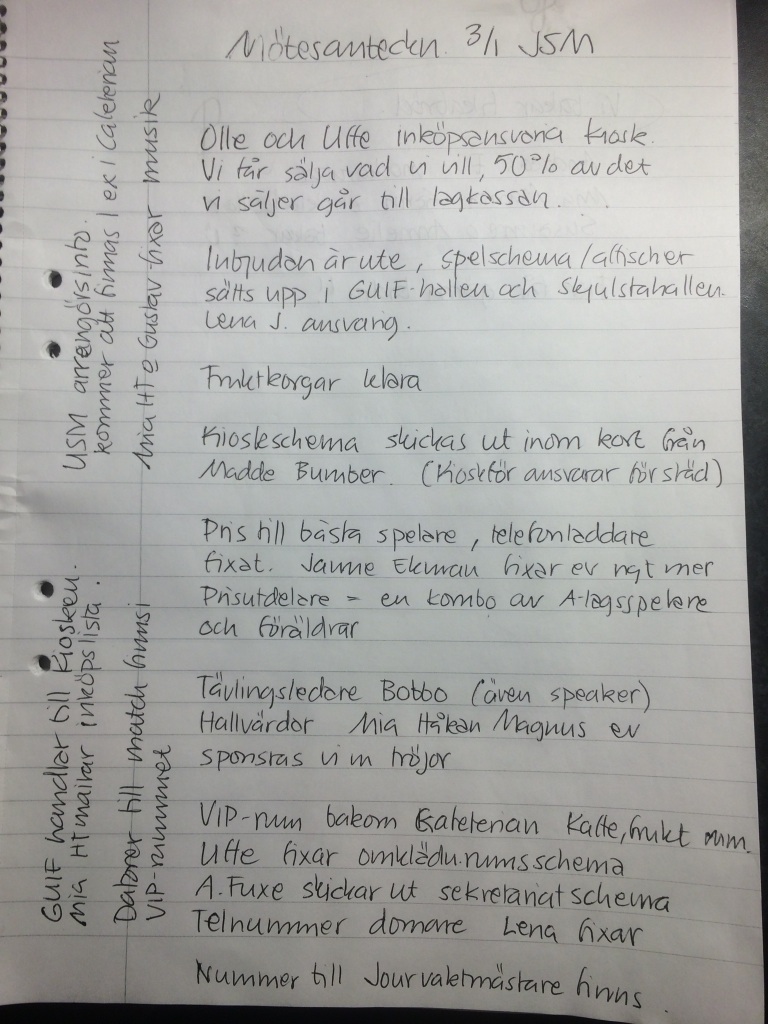 Mötesanteckn. 3/1 JSM
Olle och Uffe inköpsansvaria kiosk.
Vi får sälja vad vi vill, 50% av det
vi säljer går till lagkassan.
Inbjudan är ute, spelschema/affischer
sätts upp i GUIF-hallen och Skjulstahallen.
Lena J. ansvarig.
Fruktkorgar klara
Kioskschema skickas ut inom kort från
Madde Bumber. (Kioskför ansvarar för städ)
Pris till bästa spelare, telefonladdare
fixat. Janne Ekman fixar ev ngt mer
Prisutdelare = en kombo av A-lagsspelare
och föräldrar
Tävlingsledare Bobbo (även speaker)
Hallvärdar Mia Håkan Magnus ev
sponsras vi m tröjor
VIP-rum bakom Cafeterian Kaffe, frukt mm.
Uffe fixar omkläd.rumsschema
A. Fuxe skickar ut sekretariatschema
Telnummer domare Lena fixar
Nummer till Jourvaktmästare finns.
USM arrangörsinfo.
kommer att finnas 1 ex i Cafeterian
Mia HT o Gustav fixar musik
GUIF handlar till Kiosken.
Mia HT mailar inköpslista.
Datorer till match finns i
VIP-rummet